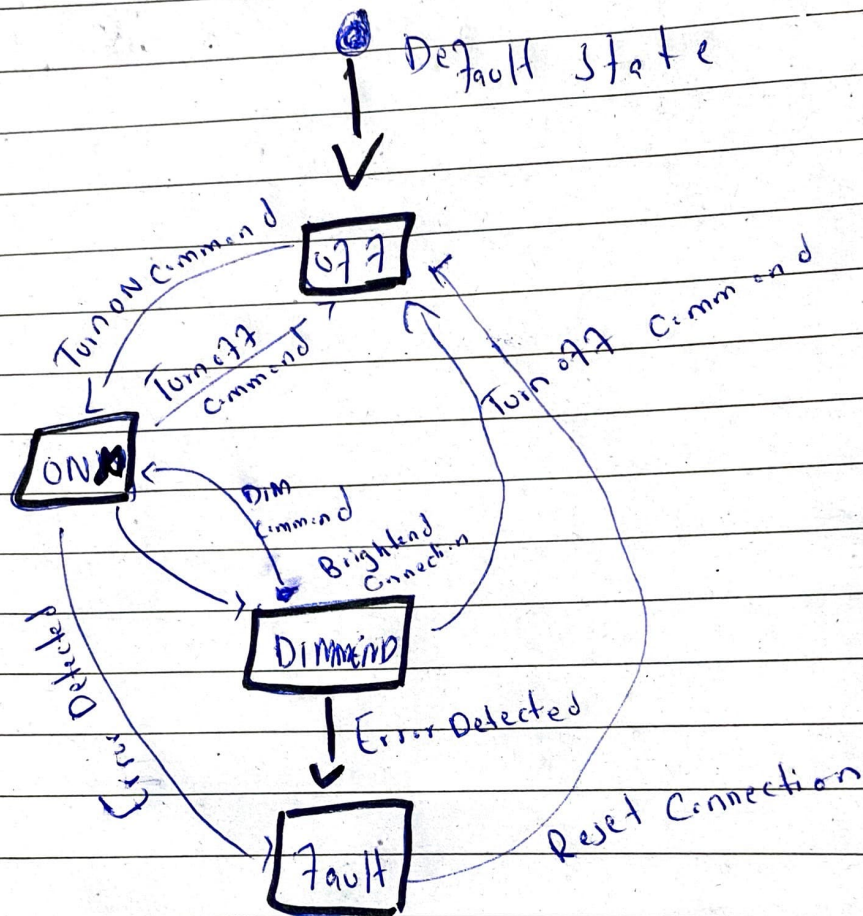 Default State
OFF
Turn ON Command
Turn off
Command
Turn off Command
ON
Dim
Command
Brightend
Connection
DIMMEND
Error Detected
Error Detected
Fault
Reset Connection